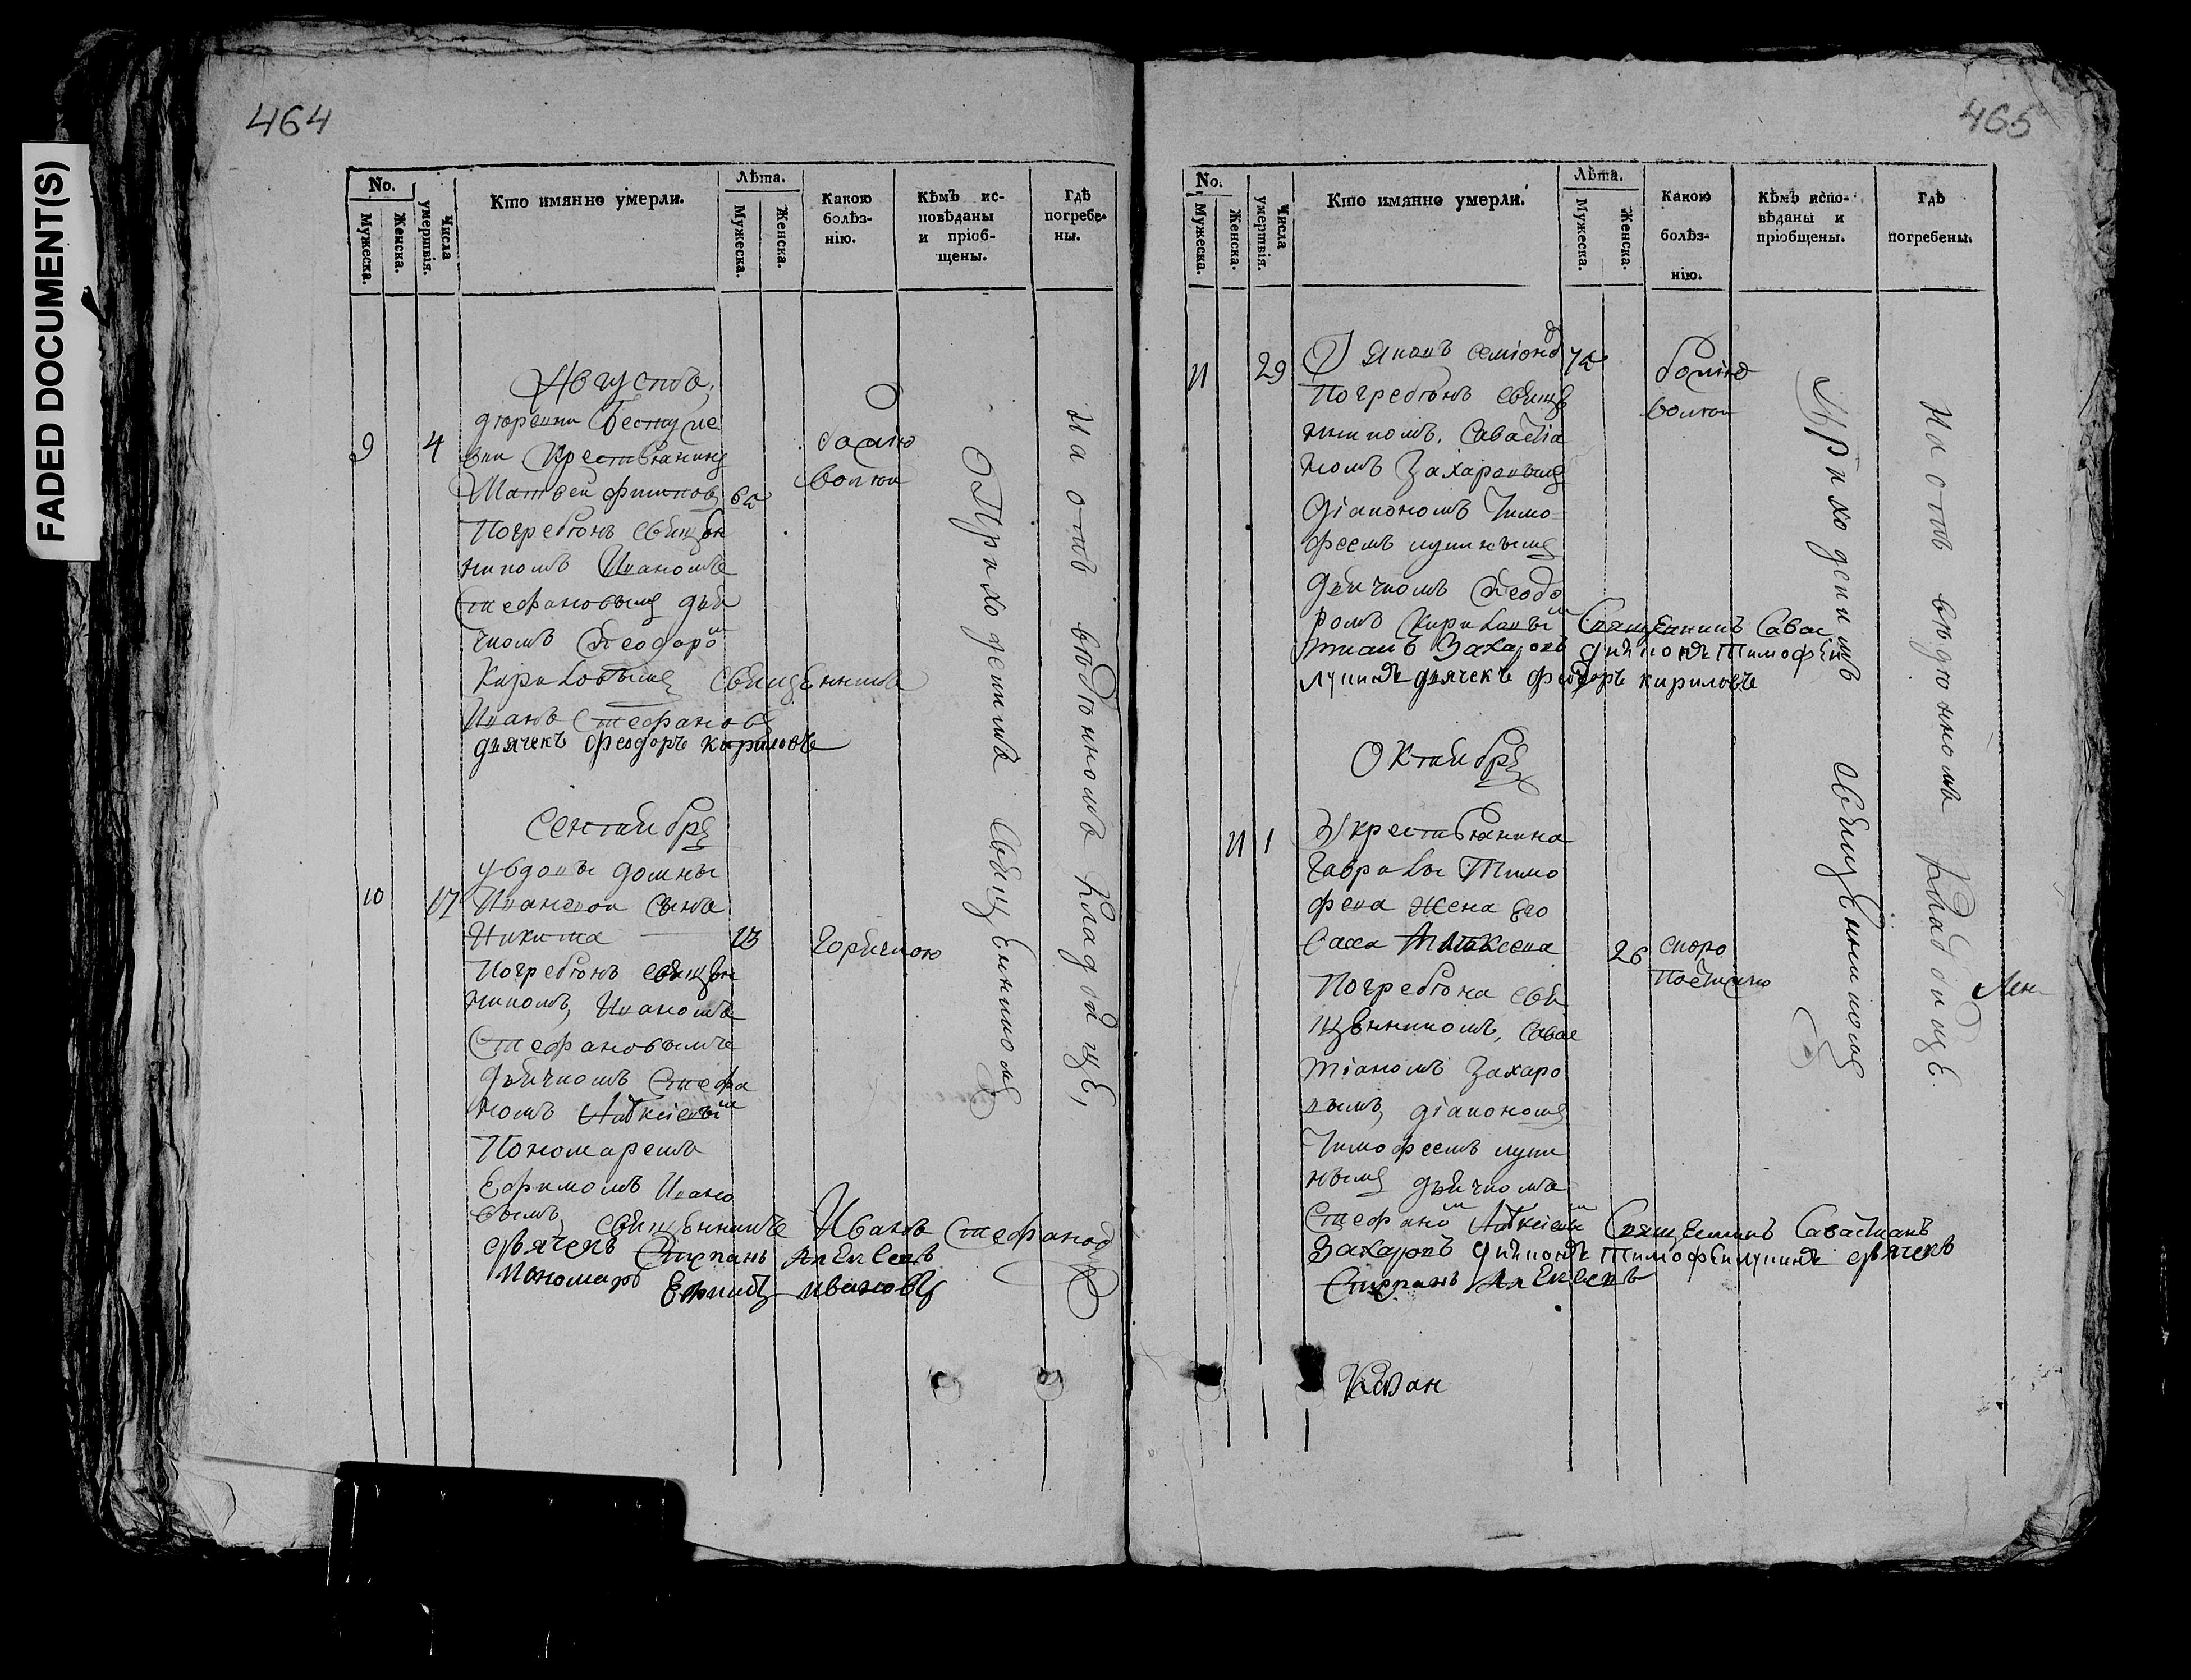 FADED DOCUMENT(S)
464
No.
Мужеска.
Женска.
Числа умертвія.
Кто имянно умерли.
Лѣта.
Мужеска.
Женска.
Какою болѣз-
нію.
Кѣмъ ис-
повѣданы
и пріоб-
щены.
Гдѣ
погребе-
ны.
Августъ
9
4
крестьянинъ
Матвей
Погребенъ священ
никомъ Иваномъ
Стефановымъ дья
чкомъ Феодоро
Кириловымъ Священникъ
Иванъ Стефановъ
дьячекъ Феодоръ Кириловъ
болію
Приходскимъ Священникомъ
На отведенномъ кладбище,
Сентября
10
17
у вдовы Домны
Ивановой сынъ
Никита
13
горячкою
Погребенъ священ
никомъ, Иваномъ
Стефановымъ
дьячкомъ Стефа
номъ Алексіевы
Пономаремъ
Ефимомъ Ивано
вымъ
Священникъ Иванъ Стефановъ
дьячекъ Стефанъ Алексеевъ
Пономарь Ефимъ Ивановъ
465
No.
Мужеска.
Женска.
Числа умертвія.
Кто имянно умерли.
Лѣта.
Мужеска.
Женска.
Какою
болѣз-
нію.
Кѣмъ испо-
вѣданы и
пріобщены.
Гдѣ
погребены.
11
29
Погребенъ священ
никомъ, Савастіа
номъ Захаровымъ
Діакономъ Тимо
феемъ Лупинымъ
дьячкомъ Феодо
ромъ Кириловы Священникъ Савас
тианъ Захаровъ диаконъ Тимофей
Лупинъ дьячекъ Феодоръ Кириловъ
Приходскимъ Священникомъ
На отведенномъ кладбище.
Октября
11
1
У крестьянина
Гаврилы Тимо
феева жена его
26
скоро
постижно
Погребена свя
щенникомъ, Савас
тіаномъ Захаро
вымъ, діакономъ
Тимофеемъ Лупи
нымъ дьячкомъ
Стефано Алексіевы Священникъ Савастианъ
Захаровъ диаконъ Тимофей Лупинъ дьячекъ
Стефанъ Алексеевъ